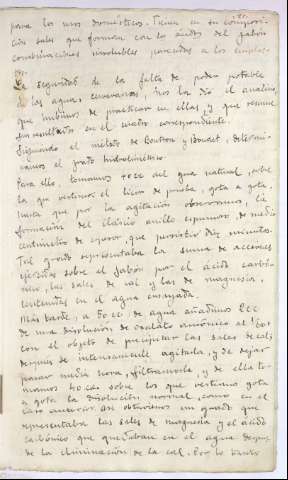 para los usos domésticos. Tienen en su composi-
ción sales que forman con los ácidos del jabón
combinaciones insolubles parecidas a los emplas-
tos.
La seguridad de la falta de poder potable
de las aguas, nos la dió el análisis
que hubimos de practicar en ellas, y que resume
sus resultados en el cuadro correspondiente.
Siguiendo el método de Boutron y Boudet, determi-
namos el grado hidrotimétrico.
Para ello, tomamos 40 cc del agua natural, sobre
la que vertimos el licor de prueba, gota a gota,
hasta que por la agitación observamos, la
formación del clásico anillo espumoso, de medio
centímetro de espesor, que persistió diez minutos.
Tal grado representaba la suma de acciones
ejercidas sobre el jabón por el ácido carbó-
nico, las sales de cal y las de magnesia,
contenidas en el agua ensayada.
Más tarde, a 50 cc, de agua añadimos 2 cc
de una disolución de oxalato amónico al 1/60
con el objeto de precipitar las sales de cal;
después de intensamente agitada, y de dejar
pasar media hora, filtramosla, y de ella to-
mamos 40 cc sobre los que vertimos gota
a gota la disolución normal, como en el
caso anterior así obtuvimos un grado que
representaba las sales de magnesia y el ácido
carbónico que quedaban en el agua después
de la eliminación de la cal. Por lo tanto